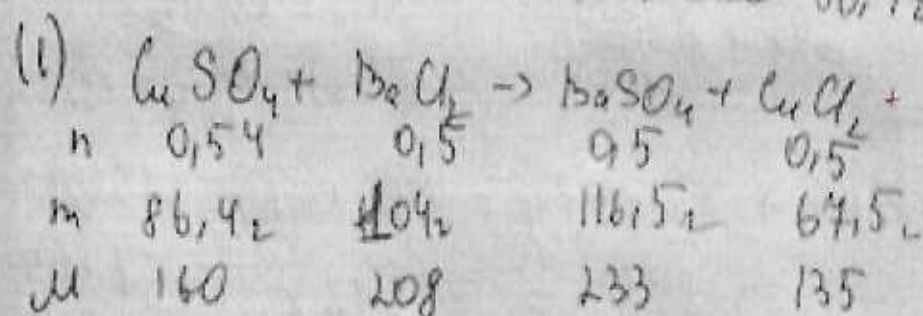 (1) CuSO₄ + BaCl₂ → BaSO₄ + CuCl₂ +
n 0,54 0,5 0,5 0,5
m 86,4г 104г 116,5г 67,5г
M 160 208 233 135